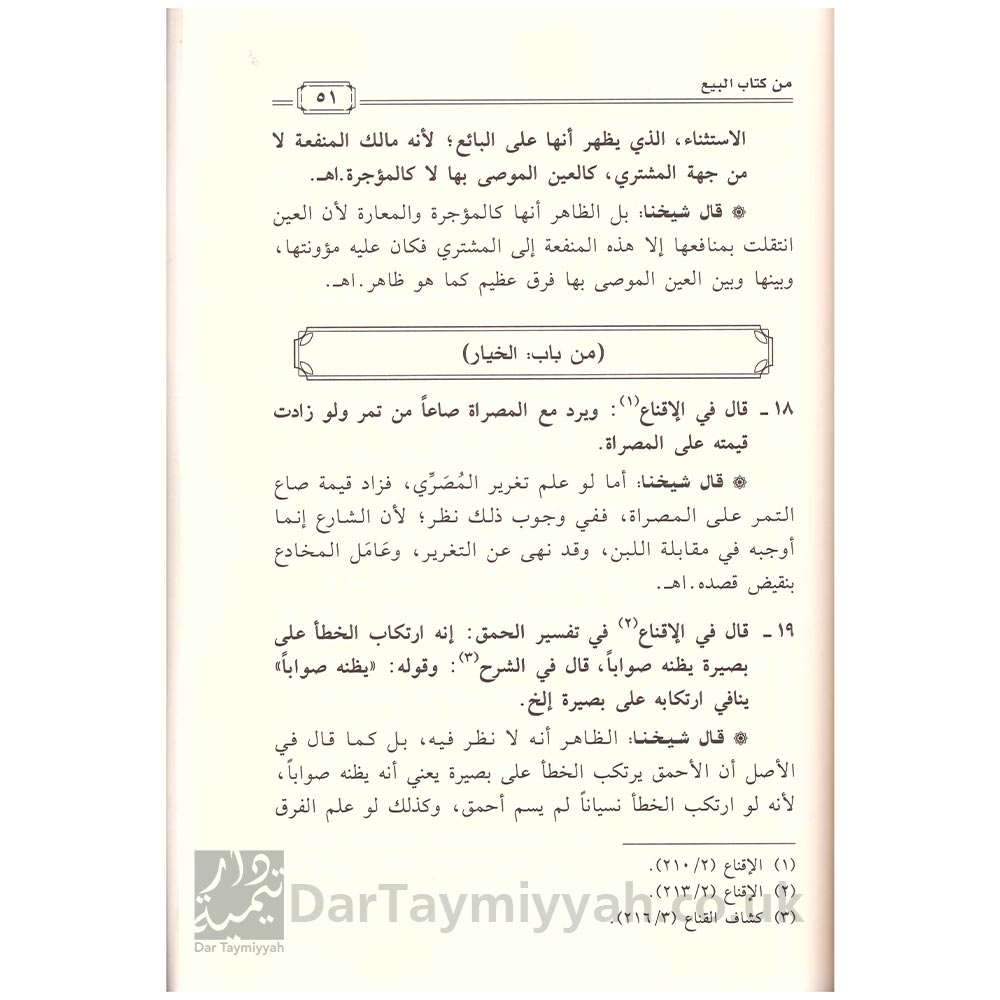 من كتاب البيع
٥١
الاستثناء، الذي يظهر أنها على البائع؛ لأنه مالك المنفعة لا
من جهة المشتري، كالعين الموصى بها لا كالمؤجرة.اهـ.
۞ قال شيخنا: بل الظاهر أنها كالمؤجرة والمعارة لأن العين
انتقلت بمنافعها إلا هذه المنفعة إلى المشتري فكان عليه مؤونتها،
وبينها وبين العين الموصى بها فرق عظيم كما هو ظاهر.اهـ.
(من باب: الخيار)
١٨ ـ قال في الإقناع(١): ويرد مع المصراة صاعاً من تمر ولو زادت
قيمته على المصراة.
۞ قال شيخنا: أما لو علم تغرير المُصَرِّي، فزاد قيمة صاع
التمر على المصراة، ففي وجوب ذلك نظر؛ لأن الشارع إنما
أوجبه في مقابلة اللبن، وقد نهى عن التغرير، وعَامَل المخادع
بنقيض قصده.اهـ.
١٩ ـ قال في الإقناع(٢) في تفسير الحمق: إنه ارتكاب الخطأ على
بصيرة يظنه صواباً، قال في الشرح(٣): وقوله: «يظنه صواباً»
ينافي ارتكابه على بصيرة إلخ.
۞ قال شيخنا: الظاهر أنه لا نظر فيه، بل كما قال في
الأصل أن الأحمق يرتكب الخطأ على بصيرة يعني أنه يظنه صواباً،
لأنه لو ارتكب الخطأ نسياناً لم يسم أحمق، وكذلك لو علم الفرق
(١) الإقناع (٢/ ٢١٠).
(٢) الإقناع (٢/ ٢١٣).
(٣) كشاف القناع (٣/ ٢١٦).
دار تيمية
Dar Taymiyyah
DarTaymiyyah.co.uk